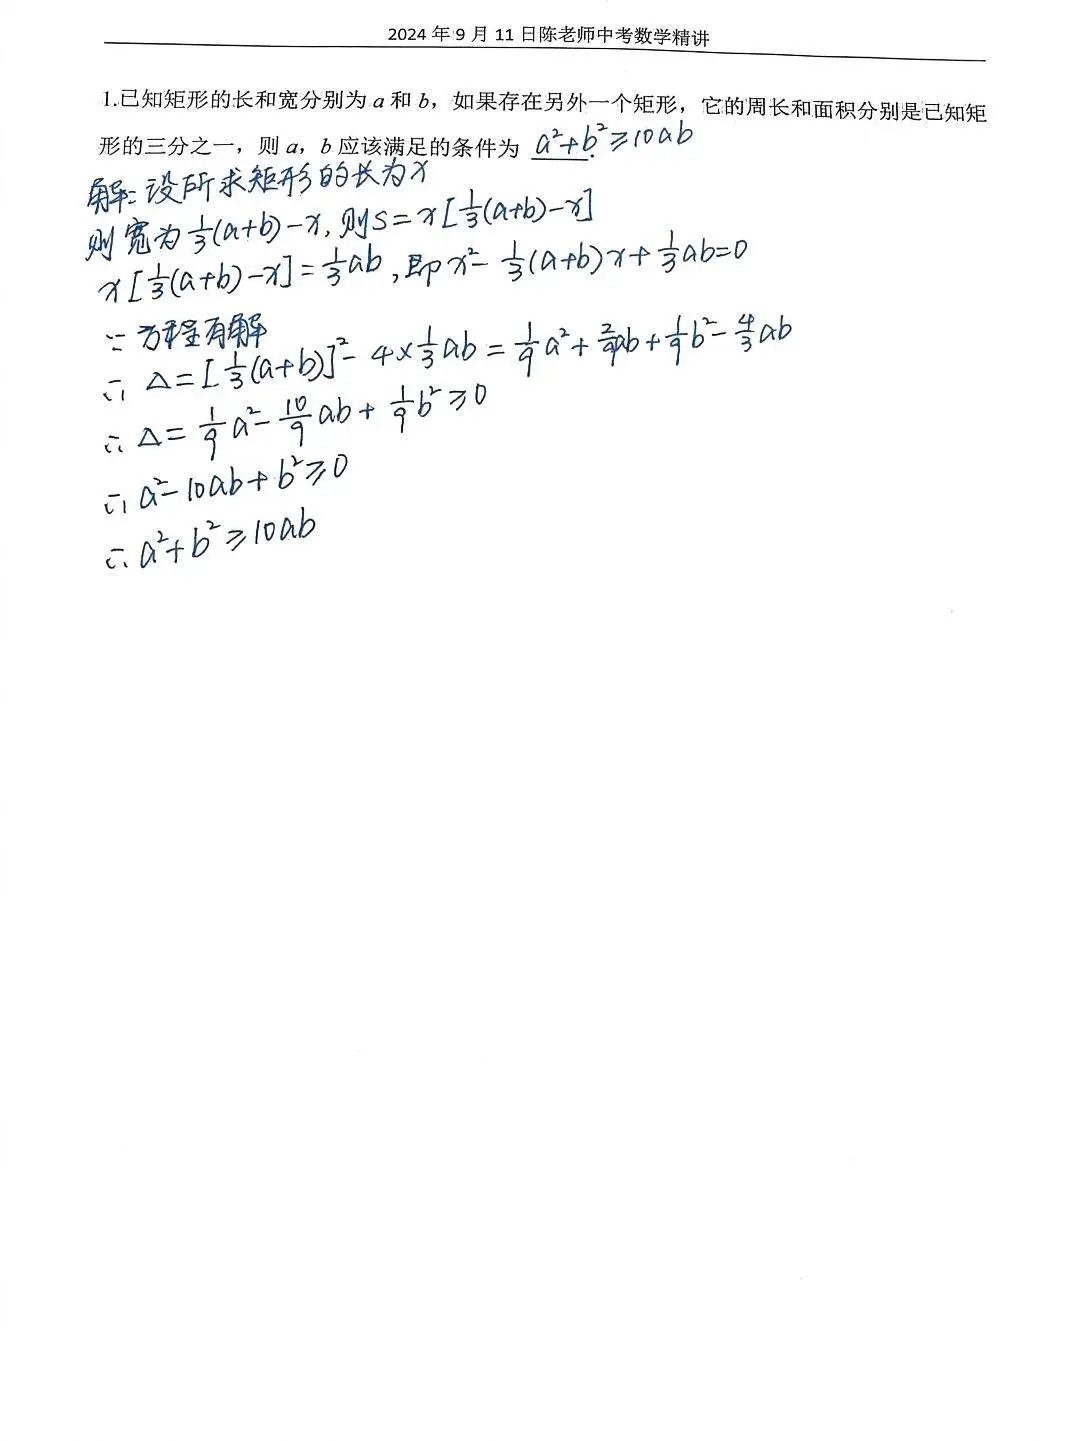 2024 年 9 月 11 日陈老师中考数学精讲
1.已知矩形的长和宽分别为 a 和 b，如果存在另外一个矩形，它的周长和面积分别是已知矩
形的三分之一，则 a，b 应该满足的条件为 a²+b²≥10ab.
解:设所求矩形的长为x
则宽为 1/3(a+b)-x, 则S=x[1/3(a+b)-x]
x[1/3(a+b)-x]=1/3ab,即x²-1/3(a+b)x+1/3ab=0
∵方程有解
∴ △=[1/3(a+b)]²-4×1/3ab=1/9a²+2/9ab+1/9b²-4/3ab
∴ △=1/9a²-10/9ab+1/9b²≥0
∴ a²-10ab+b²≥0
∴ a²+b²≥10ab